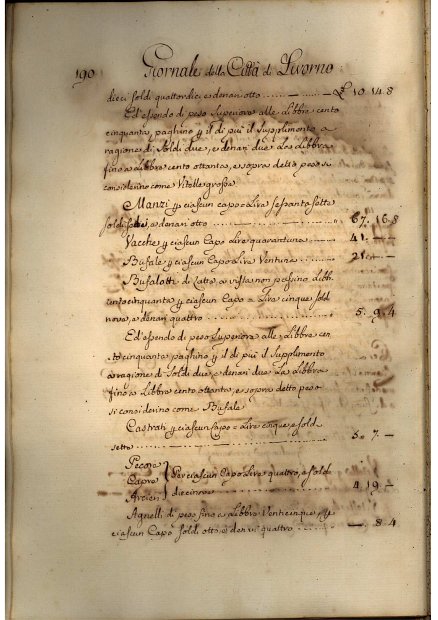 190 Giornale della Città di Livorno
dieci soldi quattordici e denari otto ₤ 10. 14. 8
Ed' essendo di peso Superiore alle Libbre cento
cinquanta, paghino p il di più il Supplimento a
ragione di Soldi due, e denari due la Libbra
fino a Libbre cento ottanta, e sopra detto peso si
considerino come Vitelle grosse
Manzi p ciascun capo = Lire sessanta sette
soldi sedici, e denari otto 67. 16. 8
Vacche p ciascun Capo Lire quarantuna 41. — —
Bufale p ciascun Capo Lire Ventuna 21. — —
Bufalotti di Latte a vista non passino Libb:
cinquanta p ciascun Capo = Lire cinque sold
nove, e denari quattro 5. 9. 4
Ed' essendo di peso Superiore alle Libbre cen
to cinquanta paghino p il di più il Supplimento
a ragione di Soldi due, e denari due La Libbra
fino a Libbre cento ottanta, e sopra detto peso
si considerino come Bufale
Castrati p ciascun Capo = Lire cinque, e sold
sette 5. 7. —
Pecore
Capre Per ciascun Capo Lire quattro, e soldi
diecinove 4. 19. —
Agnelli di peso fino a Libbre Venticinque p
ciascun Capo soldi otto, e den: quattro —. 8. 4